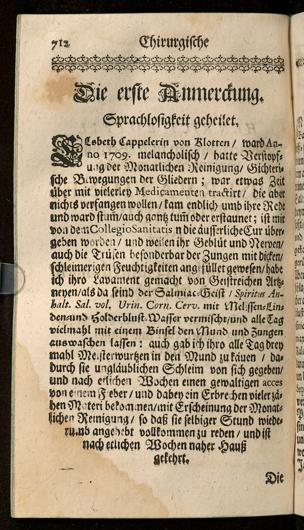 712 Chirurgische
Die erste Anmerckung.
Sprachlosigkeit geheilet.
Elsbeth Cappelerin von Klotten / ward An-
no 1709. melancholisch / hatte Verstopf-
ung der Monatlichen Reinigung / Gichteri-
sche Bewegungen der Gliedern ; war etwas Zeit
über mit vielerley Medicamenten tractirt / die aber
nichts verfangen wollen / kam endlich umb ihre Rede
und ward stum / auch gantz tum oder erstaunet ; ist mir
von dem Collegio Sanitatis in die äusserliche Cur über-
geben worden / und weilen ihr Geblüt und Nerven /
auch die Trüsen besonderbar der Zungen mit dicken /
schleimerigen Feuchtigkeiten angefüllet gewesen / habe
ich ihro Lavament gemacht von Geistreichen Artz-
neyen / als da sind der Salmiac-Geist / Spiritus An-
halt. Sal. vol. Urin. Corn. Cerv. mit Meyssen-Lin-
den und Holderblust-Wasser vermischt / und alle Tag
vielmahl mit einem Binsel den Mund und Zungen
auswaschen lassen : auch gab ich ihro alle Tag drey
mahl Meisterwurtzen in den Mund zu käuen / da-
durch sie unglaublichen Schleim von sich gegeben /
und nach etlichen Wochen einen gewaltigen acces
von einem Fieber / und dabey ein Erbrechen vieler zä-
hen Materi bekommen / mit Erscheinung der Monat-
lichen Reinigung / so daß sie selbiger Stund wiede-
rumb angehebt vollkommen zu reden / und ist
nach etlichen Wochen naher Hauß
gekehrt.
Die